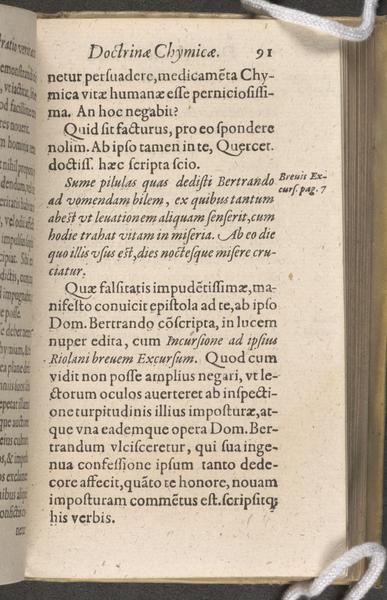 Doctrinæ Chymicæ. 91
netur persuadere, medicamẽta Chy-
mica vitæ humanæ esse perniciosissi-
ma. An hoc negabit?
Quid sit facturus, pro eo spondere
nolim. Ab ipso tamen in te, Quercet.
doctiss. hæc scripta scio.
Sume pilulas quas dedisti Bertrando
ad vomendam bilem, ex quibus tantum
abest vt leuationem aliquam senserit, cum
hodie trahat vitam in miseria. Ab eo die
quo illis vsus est, dies noctesque misere cru-
ciatur.
Breuis Ex-
curs. pag. 7
Quæ falsitatis impudẽtissimæ, ma-
nifesto conuicit epistola ad te, ab ipso
Dom. Bertrando cõscripta, in lucem
nuper edita, cum Incursione ad ipsius
Riolani breuem Excursum. Quod cum
vidit non posse amplius negari, vt le-
ctorum oculos auerteret ab inspecti-
one turpitudinis illius imposturæ, at-
que vna eademque opera Dom. Ber-
trandum vlcisceretur, qui sua inge-
nua confessione ipsum tanto dede-
core affecit, quãto te honore, nouam
imposturam commẽtus est. scripsitq;
his verbis.